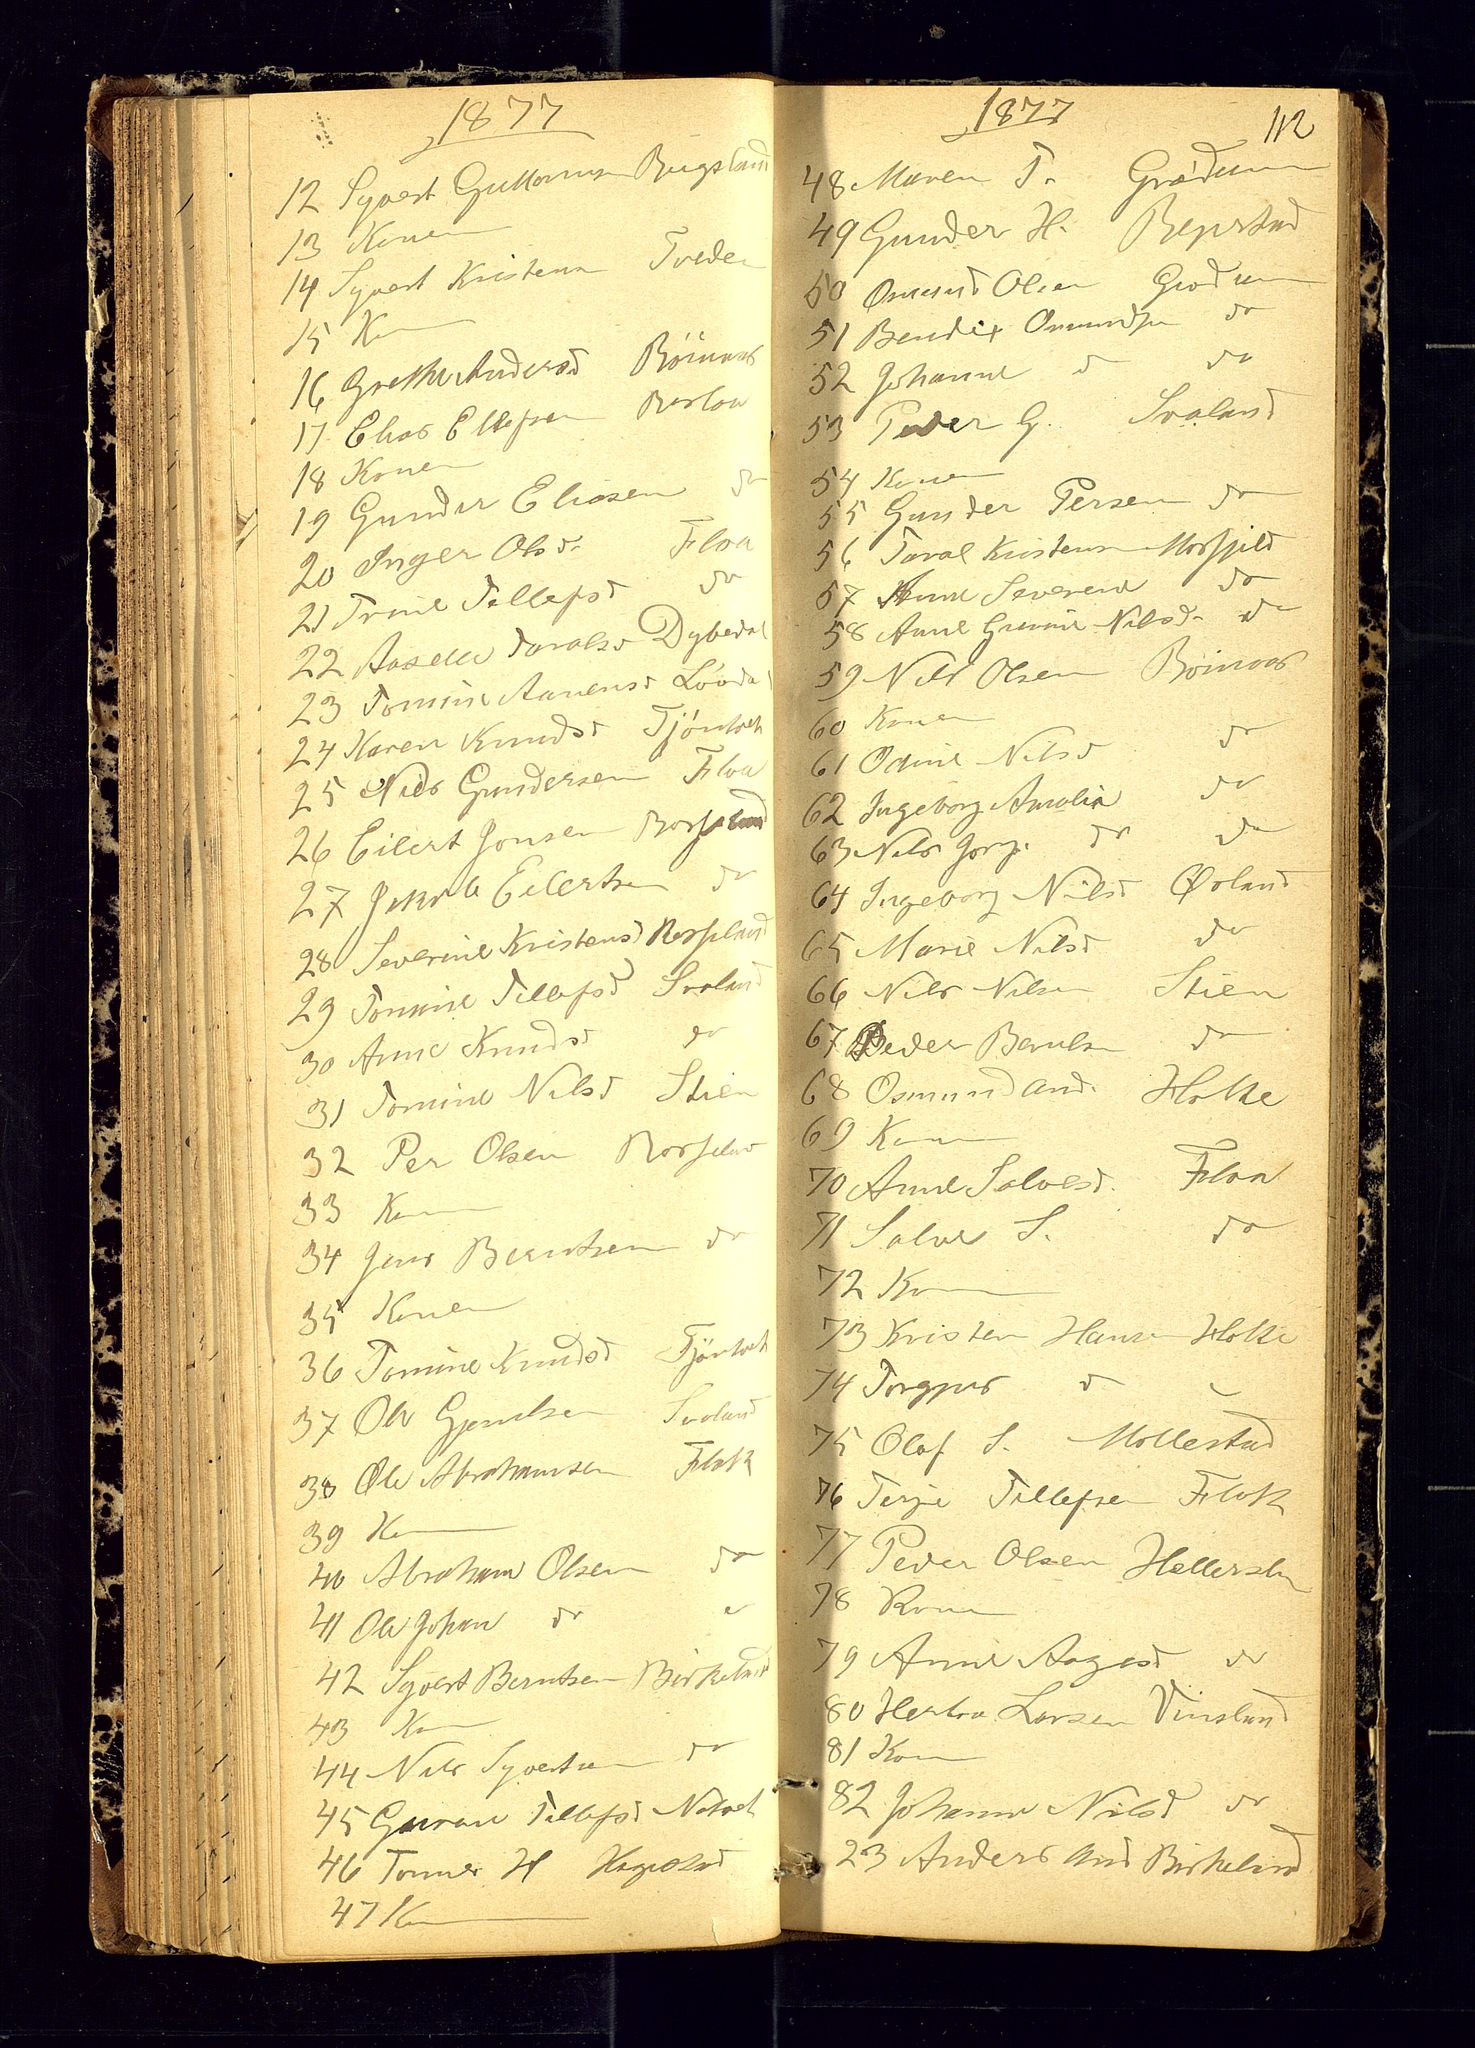 1877
12 Syvert Guttormsen Bugsland
13 Konen
14 Syvert Kristensen Tveden
15 K
16 Grethe Andersd Böinaas
17 Elias Ellefsen
18 Konen
19 Gunder Eliasen do
20 Inger Olsd. Floa
21 Trine Tellefsd do
22 Aasille Taralsd Dybedal
23 Tomine Aanensd Lövdal
24 Karen Knudsd Tjönvolt
25 Nils Gundersen Floa
26 Eilert Jonsen
27 Eilertsen do
28 Severine Kristensd
29 Tomine Tellefsd Svaland
30 Anne Knudsd do
31 Tomine Nilsd Stien
32 Per Olsen
33 K
34 Jens Berntsen do
35 Konen
36 Tomine Knudsd
37 Ole Gjerulsen Svaland
38 Ole Abrahamsen Flak
39 K
40 Abraham Olsen do
41 Ole Johan do
42 Syvert Berntsen Birkeland
43 K
44 Nils Syvertsen do
45 Tellefsd
46 H
47 K
1877 112
48 Maren T. Grødum
49 Gunder H. Rejerstad
50 Osmund Olsen Grødum
51 Bendix Osmundsen do
52 Johanne d do
53 Peder G. Svaland
54 Konen
55 Gunder Persen do
56 Taral Kristensen
57 Anne Severine do
58 Anne Gurine Nilsd. do
59 Nils Olsen Böinaas
60 Konen
61 Odine Nilsd do
62 Ingeborg Amalia do
63 Nils Jørg. do do
64 Ingeborg Nilsd
65 Marie Nilsd do
66 Nils Nilsen Stien
67 Peder Berulsen do
68 Osmund And. Holte
69 Konen
70 Anne Salvesd. Floa
71 Salve S. do
72 Konen
73 Kristen Hansen Holte
74 Torgjus d
75 Olaf S. Mollestad
76 Terje Tellefsen Flak
77 Peder Olsen
78 Konen
79 Anne Aagesd do
80 Larsen Vinsland
81 Konen
82 Johanne Nilsd do
23 Anders And Birkeland